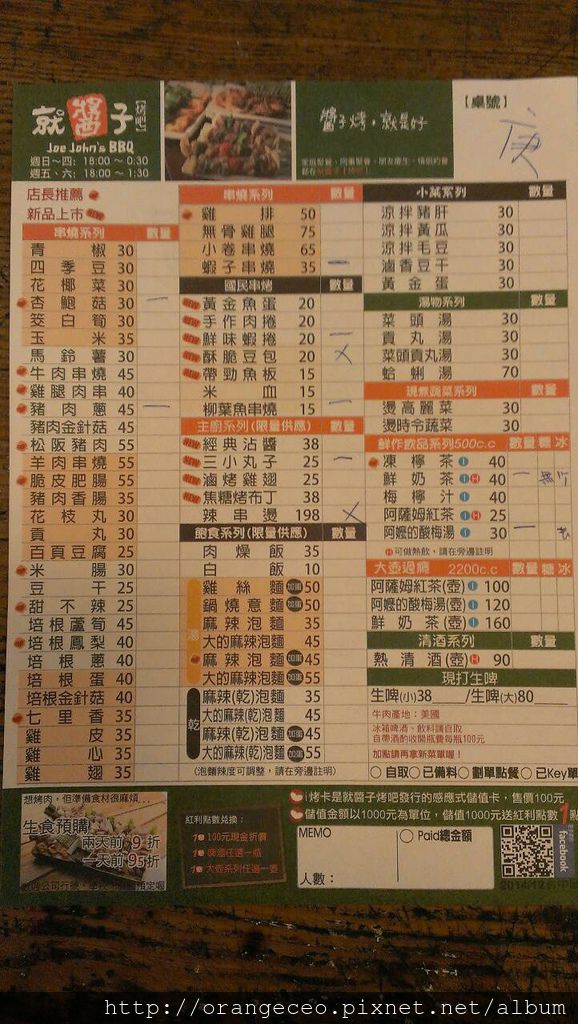 就醬子
【烤吧】
Joe John's BBQ
週日~四: 18:00 ~ 0:30
週五、六: 18:00 ~ 1:30
醬子烤，就是好
【桌號】
庚
店長推薦
新品上市
串燒系列 數量
青椒 30
四季豆 30
花椰菜 30
杏鮑菇 30 一
筊白筍 30
玉米 35
馬鈴薯 30
牛肉串燒 45
雞腿肉串 40
豬肉蔥 45 一
豬肉金針菇 45
松阪豬肉 55
羊肉串燒 55
脆皮肥腸 55
豬肉香腸 35
花枝丸 30
貢丸 30
百頁豆腐 25
米腸 30
豆干 25
甜不辣 25
培根蘆筍 45
培根鳳梨 40
培根蔥 40
培根蛋 40
培根金針菇 40
七里香 35
雞皮 35
雞心 35
雞翅 35
串燒系列 數量
雞排 50
無骨雞腿 75
小卷串燒 65
蝦子串燒 35 一
國民串烤 數量
黃金魚蛋 20
手作肉捲 20
鮮味蝦捲 20 一
酥脆豆包 20
帶勁魚板 15
米血 15
柳葉魚串燒 15 一
主廚系列(限量供應)
經典沾醬 38
三小丸子 25 一
滷烤雞翅 25
焦糖烤布丁 38
辣串燙 198
飽食系列(限量供應) 數量
肉燥飯 35
白飯 10
湯
雞絲麵 加蛋 50
鍋燒意麵 加蛋 50
麻辣泡麵 35
大的麻辣泡麵 45
麻辣泡麵 加蛋 45
大的麻辣泡麵 加蛋 55
乾
麻辣(乾)泡麵 35
大的麻辣(乾)泡麵 45
麻辣(乾)泡麵 加蛋 45
大的麻辣(乾)泡麵 加蛋 55
(泡麵辣度可調整，請在旁邊註明)
小菜系列 數量
涼拌豬肝 30
涼拌黃瓜 30
涼拌毛豆 30
滷香豆干 30
黃金蛋 30
湯物系列 數量
菜頭湯 30
貢丸湯 30
菜頭貢丸湯 30
蛤蜊湯 70
現煮蔬菜系列 數量
燙高麗菜 30
燙時令蔬菜 30
鮮作飲品系列500c.c 數量 糖 冰
凍檸茶 I 40
鮮奶茶 I H 40 一
梅檸汁 I 40
阿薩姆紅茶 I H 25
阿嬤的酸梅湯 I 30 一
H 可做熱飲，請在旁邊註明
大壺過癮 2200c.c 數量 糖 冰
阿薩姆紅茶(壺) I 100
阿嬤的酸梅湯(壺) I 120
鮮奶茶(壺) I 160
清酒系列 數量
熱清酒(壺) H 90
現打生啤
生啤(小)38 /生啤(大)80
牛肉產地：美國
冰箱啤酒、飲料請自取
自帶酒酌收開瓶費每瓶100元
加點請再拿新菜單喔！
○自取○已備料○劃單點餐○已Key單
想烤肉，但準備食材很麻煩...
生食預購
兩天前 9折
一天前 95折
紅利點數兌換：
100元現金折價
啤酒任選一瓶
大壺系列任選一壺
i烤卡是就醬子烤吧發行的感應式儲值卡，售價100元
儲值金額以1000元為單位，儲值1000元送紅利點數1點
MEMO
○ Paid總金額
人數：
facebook
2014/12
http://orangeceo.pixnet.net/album